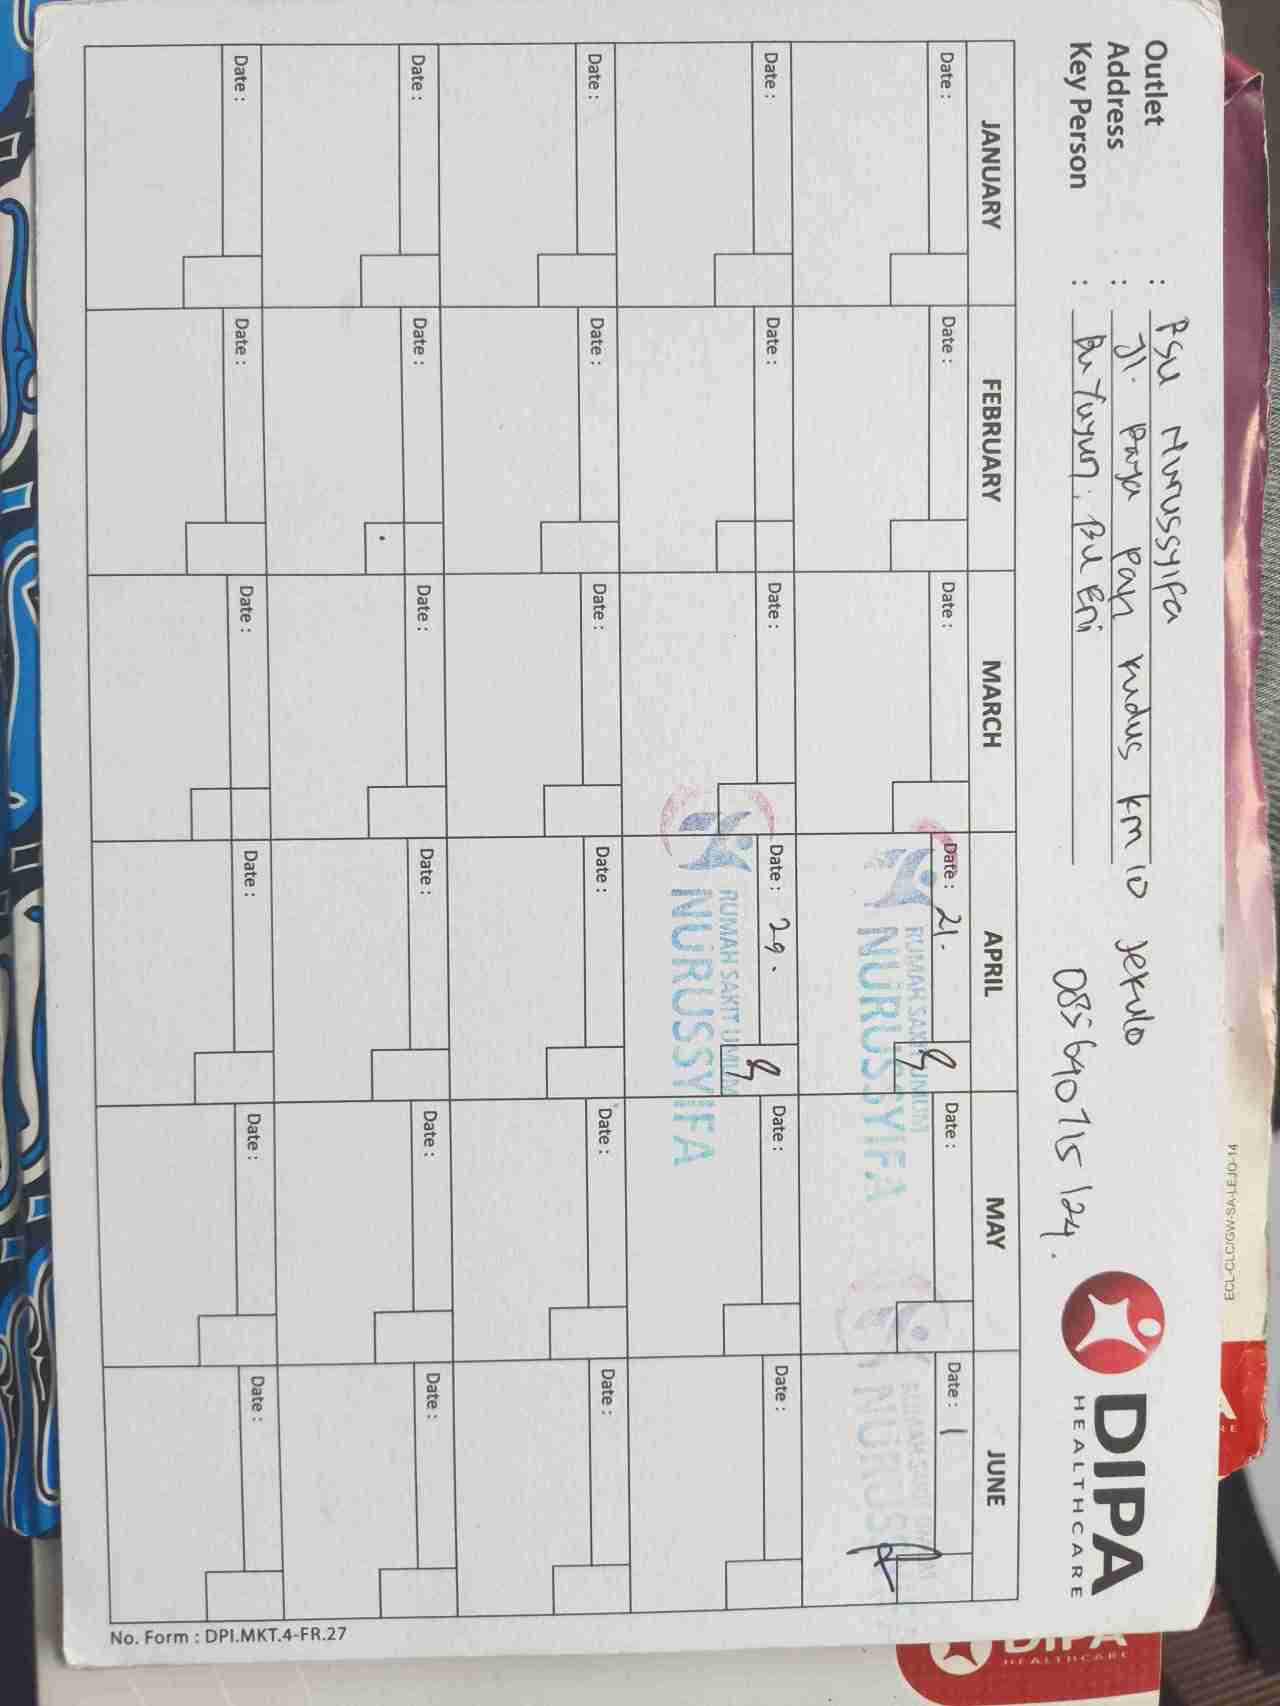 Outlet : RSU Nurussyifa
Address : Jl. Raya Pati Kudus km 10 Jekulo
Key Person : Bu Yuyun, Bu Eni 085640715124.
DIPA
HEALTHCARE
JANUARY FEBRUARY MARCH APRIL MAY JUNE
Date : Date : Date : Date : 21. Date : Date : 1
RUMAH SAKIT UMUM
NURUSSYIFA
RUMAH SAKIT UMUM
Date : Date : Date : Date : 29. Date : Date :
RUMAH SAKIT UMUM
NURUSSYIFA
Date : Date : Date : Date : Date : Date :
Date : Date : Date : Date : Date : Date :
Date : Date : Date : Date : Date : Date :
No. Form : DPI.MKT.4-FR.27
ECL-CLC/GW-SA-LEJ0-14
DIPA
HEALTHCARE